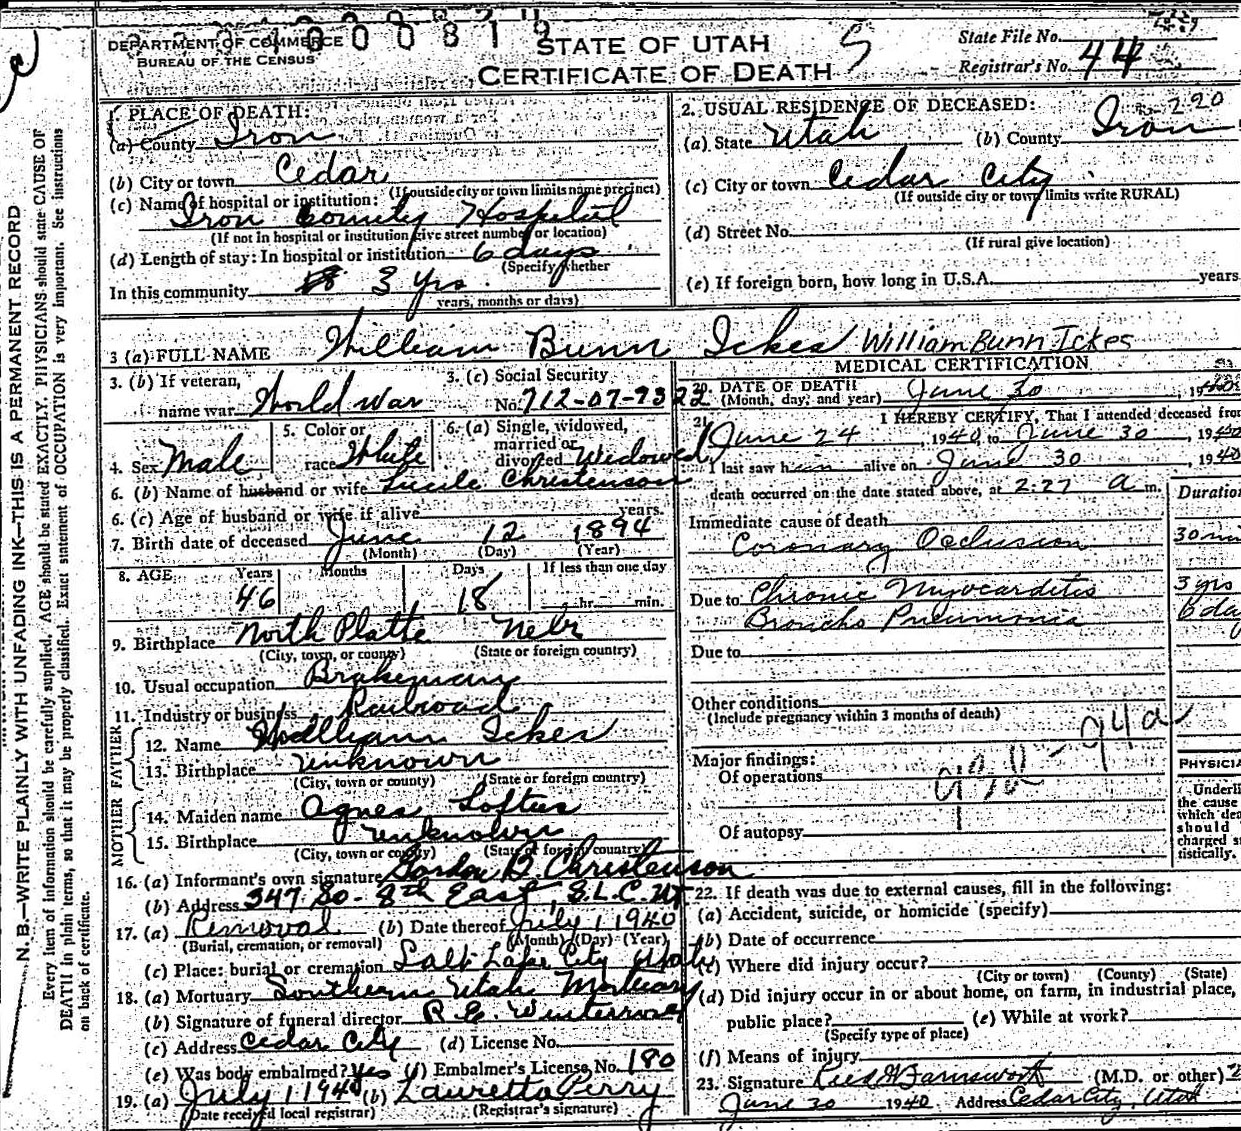 000819
DEPARTMENT OF COMMERCE
BUREAU OF THE CENSUS
STATE OF UTAH
CERTIFICATE OF DEATH
State File No.
Registrar's No. 44
1. PLACE OF DEATH:
(a) County Iron
(b) City or town Cedar
(If outside city or town limits name precinct)
(c) Name of hospital or institution:
Iron County Hospital
(If not in hospital or institution give street number or location)
(d) Length of stay: In hospital or institution 6 days
(Specify whether
In this community 3 yrs.
years, months or days)
2. USUAL RESIDENCE OF DECEASED: 220
(a) State Utah (b) County Iron
(c) City or town Cedar City
(If outside city or town limits write RURAL)
(d) Street No.
(If rural give location)
(e) If foreign born, how long in U.S.A. years
3 (a) FULL NAME William Bunn Ickes William Bunn Ickes
3. (b) If veteran, name war World War
3. (c) Social Security No. 712-07-7322
4. Sex Male
5. Color or race White
6. (a) Single, widowed, married or divorced Widowed
6. (b) Name of husband or wife Lucile Christenson
6. (c) Age of husband or wife if alive years.
7. Birth date of deceased June 12 1894
(Month) (Day) (Year)
8. AGE Years 46 Months Days 18 If less than one day hr. min.
9. Birthplace North Platte Nebr
(City, town, or county) (State or foreign country)
10. Usual occupation Brakeman
11. Industry or business Railroad
FATHER
12. Name William Ickes
13. Birthplace unknown
(City, town or county) (State or foreign country)
MOTHER
14. Maiden name Agnes Loftus
15. Birthplace unknown
(City, town or county) (State or foreign country)
16. (a) Informant's own signature Gordon B. Christenson
(b) Address 347 So - 8th East, S.L.C. Ut
17. (a) Removal (b) Date thereof July 1 1940
(Burial, cremation, or removal) (Month) (Day) (Year)
(c) Place: burial or cremation Salt Lake City Utah
18. (a) Mortuary Southern Utah Mortuary
(b) Signature of funeral director
(c) Address Cedar City (d) License No.
(e) Was body embalmed? Yes (f) Embalmer's License, No. 180
19. (a) July 1 1940 (b) Lauretta Perry
(Date received local registrar) (Registrar's signature)
MEDICAL CERTIFICATION
20. DATE OF DEATH June 30 1940
(Month, day, and year)
21. I HEREBY CERTIFY, That I attended deceased from
June 24, 1940, to June 30, 1940
I last saw him alive on June 30, 1940
death occurred on the date stated above, at 2:27 a m.
Duration
Immediate cause of death
Coronary Occlusion 30 min
Due to Chronic Myocarditis 3 yrs
Broncho Pneumonia 6 day
Due to
Other conditions
(Include pregnancy within 3 months of death)
94a
Major findings:
Of operations
Of autopsy
PHYSICIA
Underli
the cause
which dea
should
charged s
tistically.
22. If death was due to external causes, fill in the following:
(a) Accident, suicide, or homicide (specify)
(b) Date of occurrence
(c) Where did injury occur?
(City or town) (County) (State)
(d) Did injury occur in or about home, on farm, in industrial place,
public place? (e) While at work?
(Specify type of place)
(f) Means of injury
23. Signature Reed W Farnsworth (M.D. or other)
June 30 1940 Address Cedar City, Utah
N. B.—WRITE PLAINLY WITH UNFADING INK—THIS IS A PERMANENT RECORD
Every item of information should be carefully supplied. AGE should be stated EXACTLY. PHYSICIANS should state CAUSE OF
DEATH in plain terms, so that it may be properly classified. Exact statement of OCCUPATION is very important. See instructions
on back of certificate.